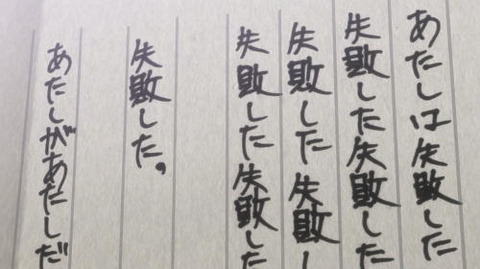 あたしは失敗した
失敗した失敗した
失敗した失敗し
失敗した失敗した
失敗した。
あたしがあたしだ